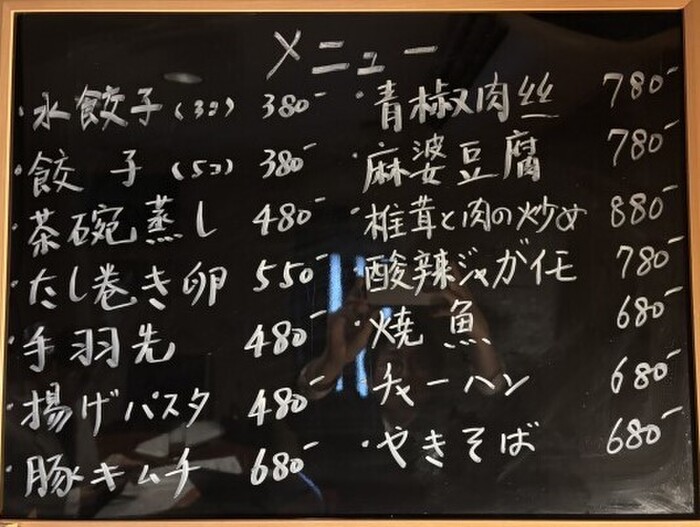 メニュー
・水餃子(3コ) 380-
・餃子(5コ) 380-
・茶碗蒸し 480-
・だし巻き卵 550-
・手羽先 480-
・揚げパスタ 480-
・豚キムチ 680-
・青椒肉絲 780-
・麻婆豆腐 780-
・椎茸と肉の炒め 880-
・酸辣ジャガイモ 780-
・焼魚 680-
・チャーハン 680-
・やきそば 680-